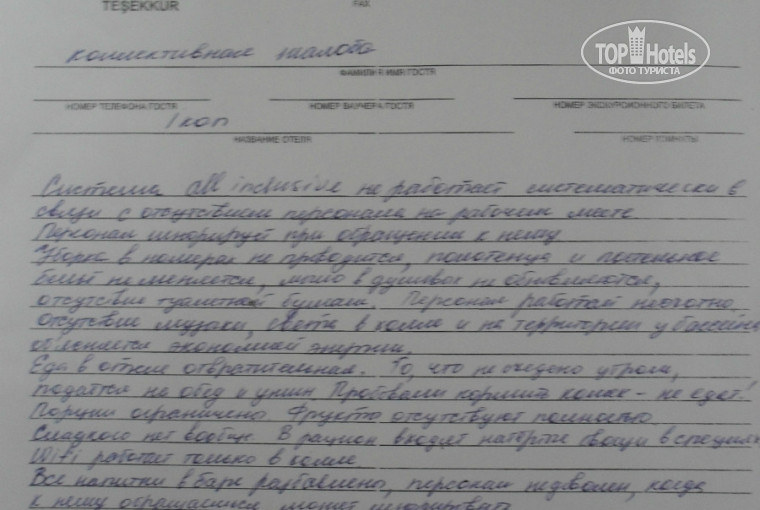 TEŞEKKUR
FAX
TOP Hotels
ФОТО ТУРИСТА
коллективная жалоба
ФАМИЛИЯ ИМЯ ГОСТЯ
НОМЕР ТЕЛЕФОНА ГОСТЯ НОМЕР ВАУЧЕРА ГОСТЯ НОМЕР ЭКСКУРСИОННОГО БИЛЕТА
НАЗВАНИЕ ОТЕЛЯ НОМЕР КОМНАТЫ
Система all inclusive не работает систематически в
связи с отсутствием персонала на рабочем месте
Персонал игнорирует при обращении к нему
Уборка в номерах не проводится, полотенца и постельное
бельё не меняется, мыло в душевых не обновляются,
отсутствие туалетной бумаги. Персонал работает неохотно,
отсутствие музыки, света в холле и на территории у бассейна
объясняется экономией энергии.
Еда в отеле отвратительная. То, что не съедено утром,
подаётся на обед и ужин. Пробовали кормить кошек - не едят!
Порции ограничены. Фрукты отсутствуют полностью.
Сладкого нет вообще. В рацион входят натёртые овощи в специях
Wi-Fi работает только в холле
Все напитки в баре разбавлены, персонал недоволен, когда
к нему обращаешься, может игнорировать